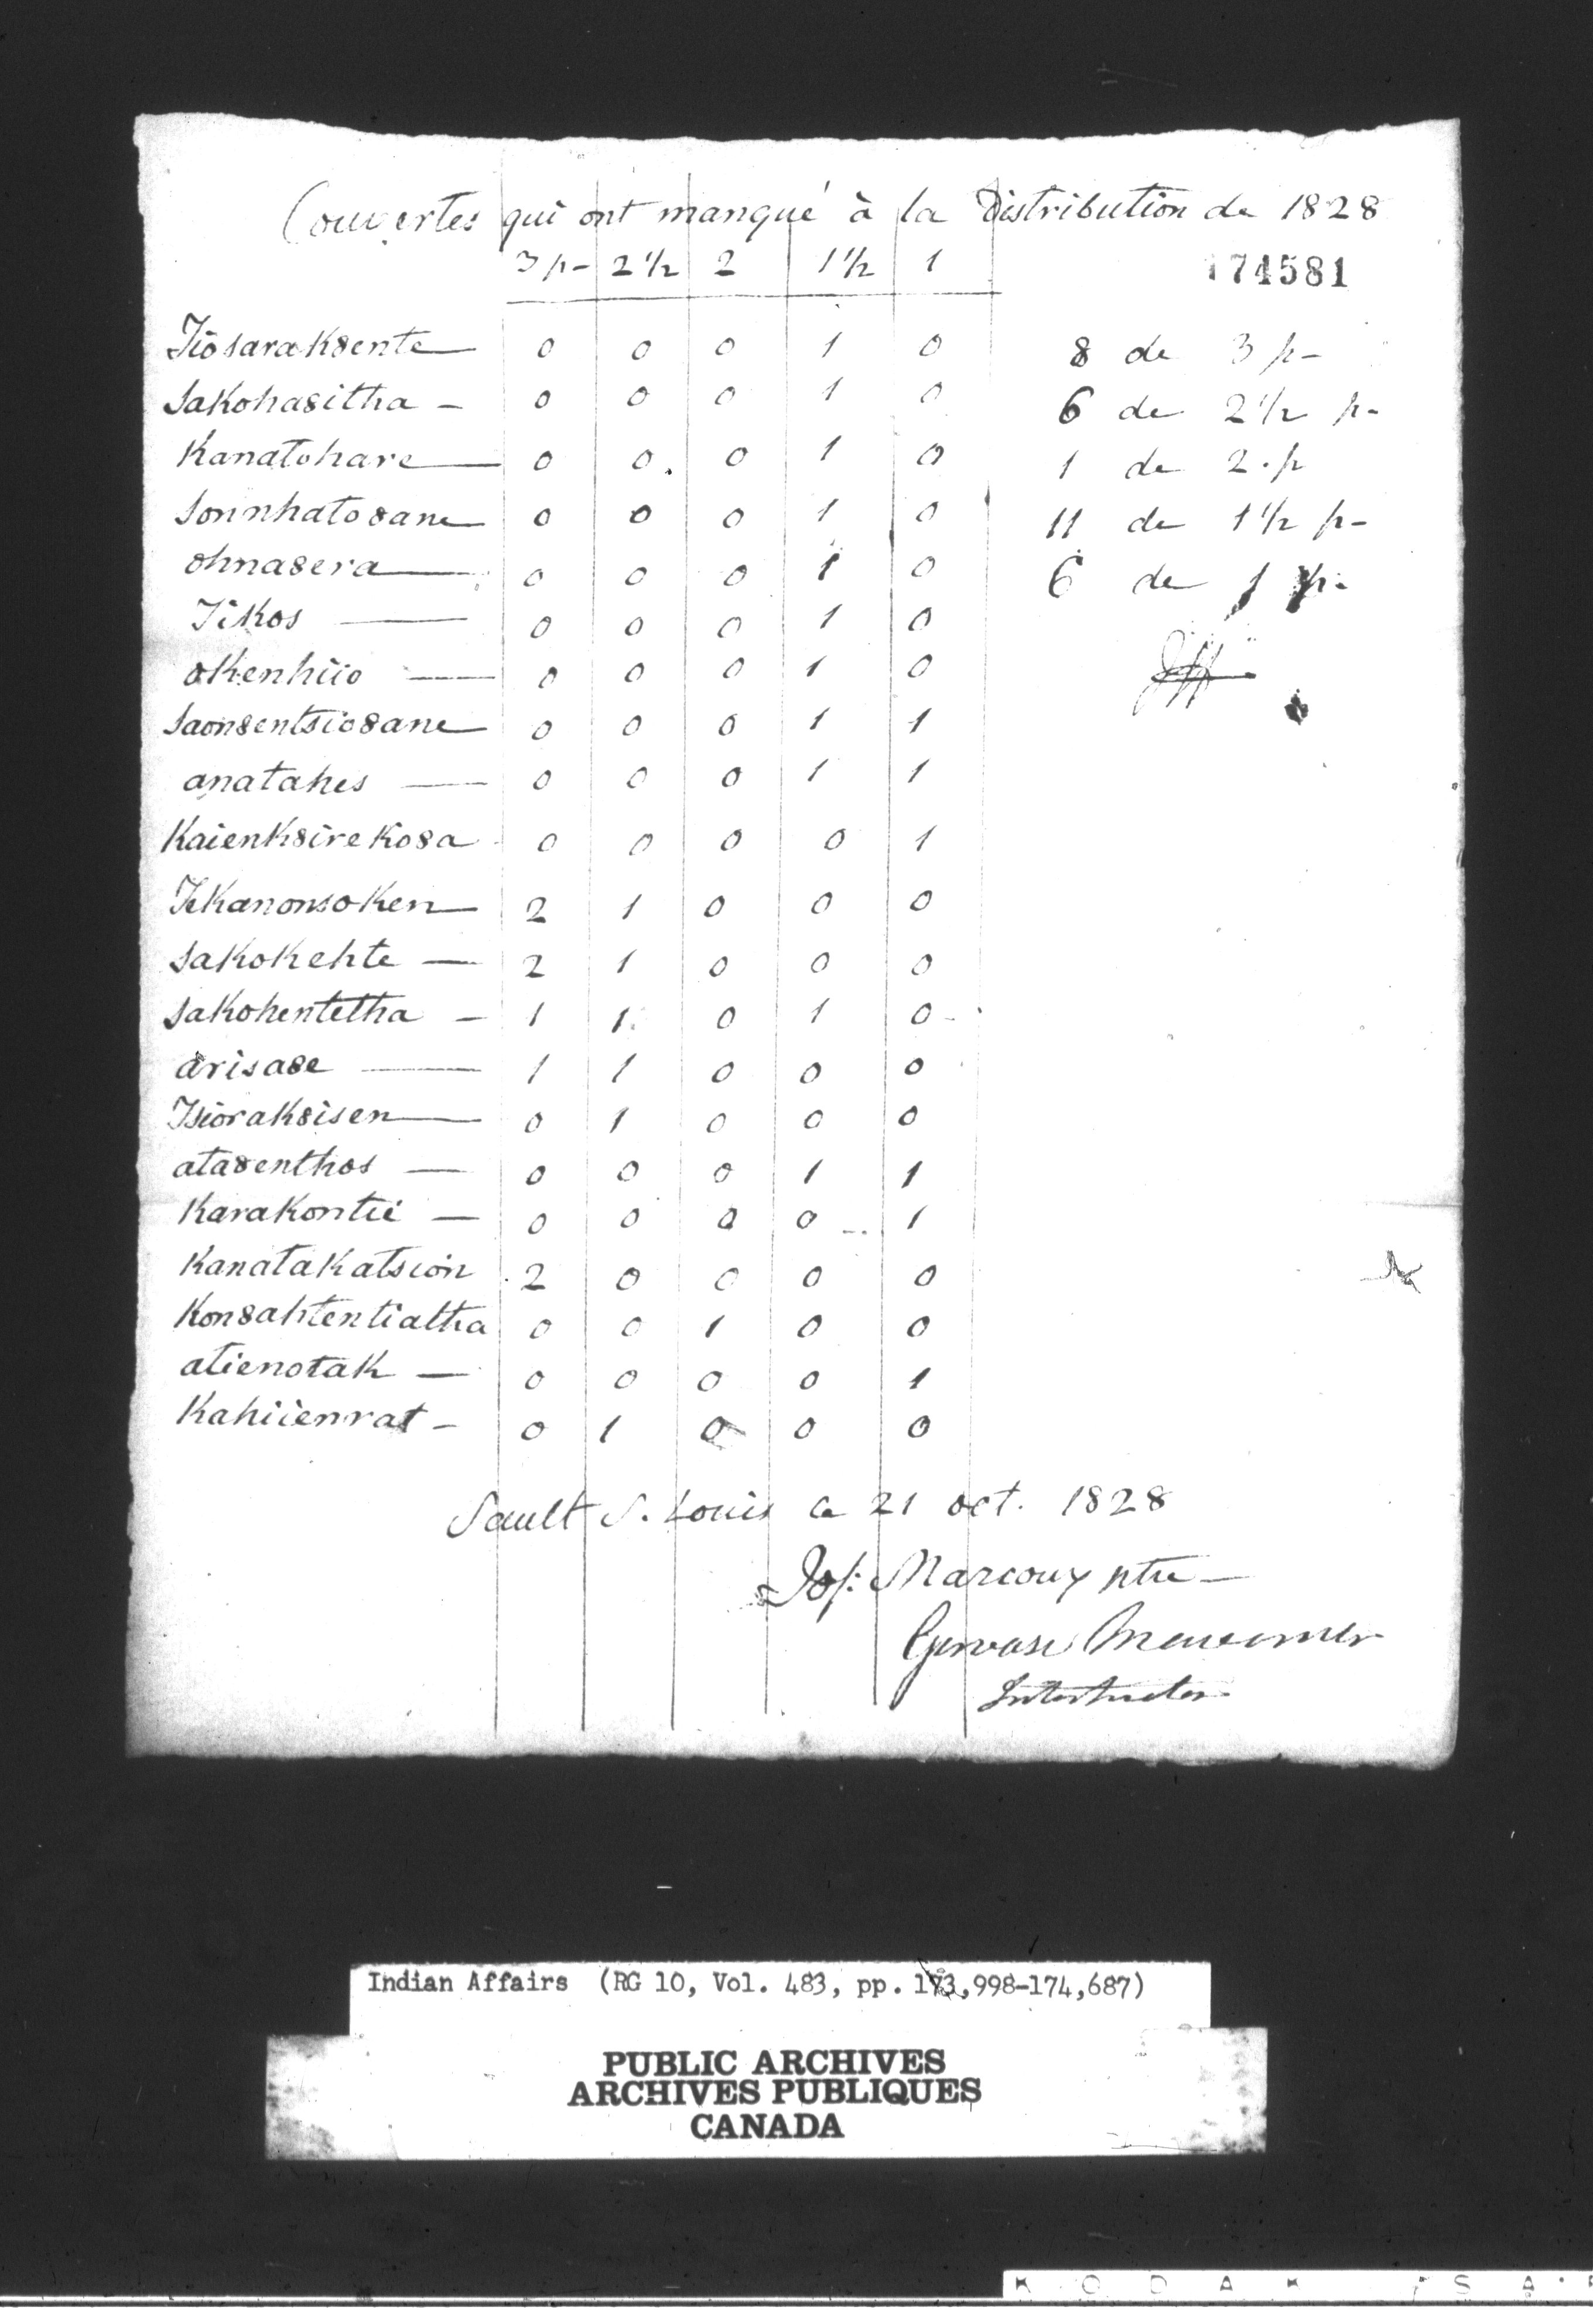 Couvertes qui ont manqué à la Distribution de 1828
3 p- 2 1/2 2 1 1/2 1
174581
Tiosarak8ente — 0 0 0 1 0 8 de 3 p-
Sakoha8itha - 0 0 0 1 0 6 de 2 1/2 p-
Kanatohare — 0 0 0 1 0 1 de 2 p
Sonnhato8ane — 0 0 0 1 0 11 de 1 1/2 p-
ohna8era — 0 0 0 1 0 6 de 1 p-
Tikos — 0 0 0 1 0
okenhiio — 0 0 0 1 0
Saon8entsio8ane — 0 0 0 1 1
anatahes — 0 0 0 1 1
Kaienk8ireko8a 0 0 0 0 1
Tekanonsoken — 2 1 0 0 0
Sakokehte — 2 1 0 0 0
Sakohentetha - 1 1 0 1 0
arisa8e — 1 1 0 0 0
Tsiorak8isen — 0 1 0 0 0
ata8enthos — 0 0 0 1 1
Karakontie — 0 0 0 0 1
Kanatakatsion 2 0 0 0 0
Kon8ahtentiatha 0 0 1 0 0
atienotak — 0 0 0 0 1
Kahiienrat - 0 1 0 0 0
Sault S. Louis ce 21 oct. 1828
Jos: Marcoux ptre -
Gervase Macomber
Interpreter
Indian Affairs (RG 10, Vol. 483, pp. 173,998-174,687)
PUBLIC ARCHIVES
ARCHIVES PUBLIQUES
CANADA
K O D A K S A